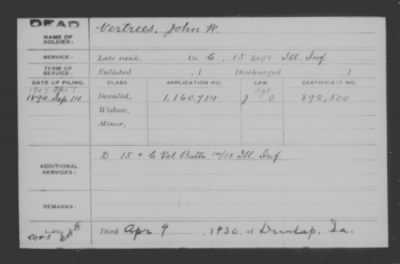 DEAD
NAME OF SOLDIER: Vertrees, John W.
SERVICE: Late rank, Co. C, 15 Reg't Ill. Inf
TERM OF SERVICE: Enlisted , 1 Discharged , 1
DATE OF FILING. CLASS. APPLICATION NO. LAW. CERTIFICATE NO.
Invalid, 1,160,714 J 892,500
Widow,
Minor,
ADDITIONAL SERVICES: D 15 & C Vet Battn 14/15 Ill. Inf
REMARKS:
Died Apr 9, 1930, at Dunlap, Ia.